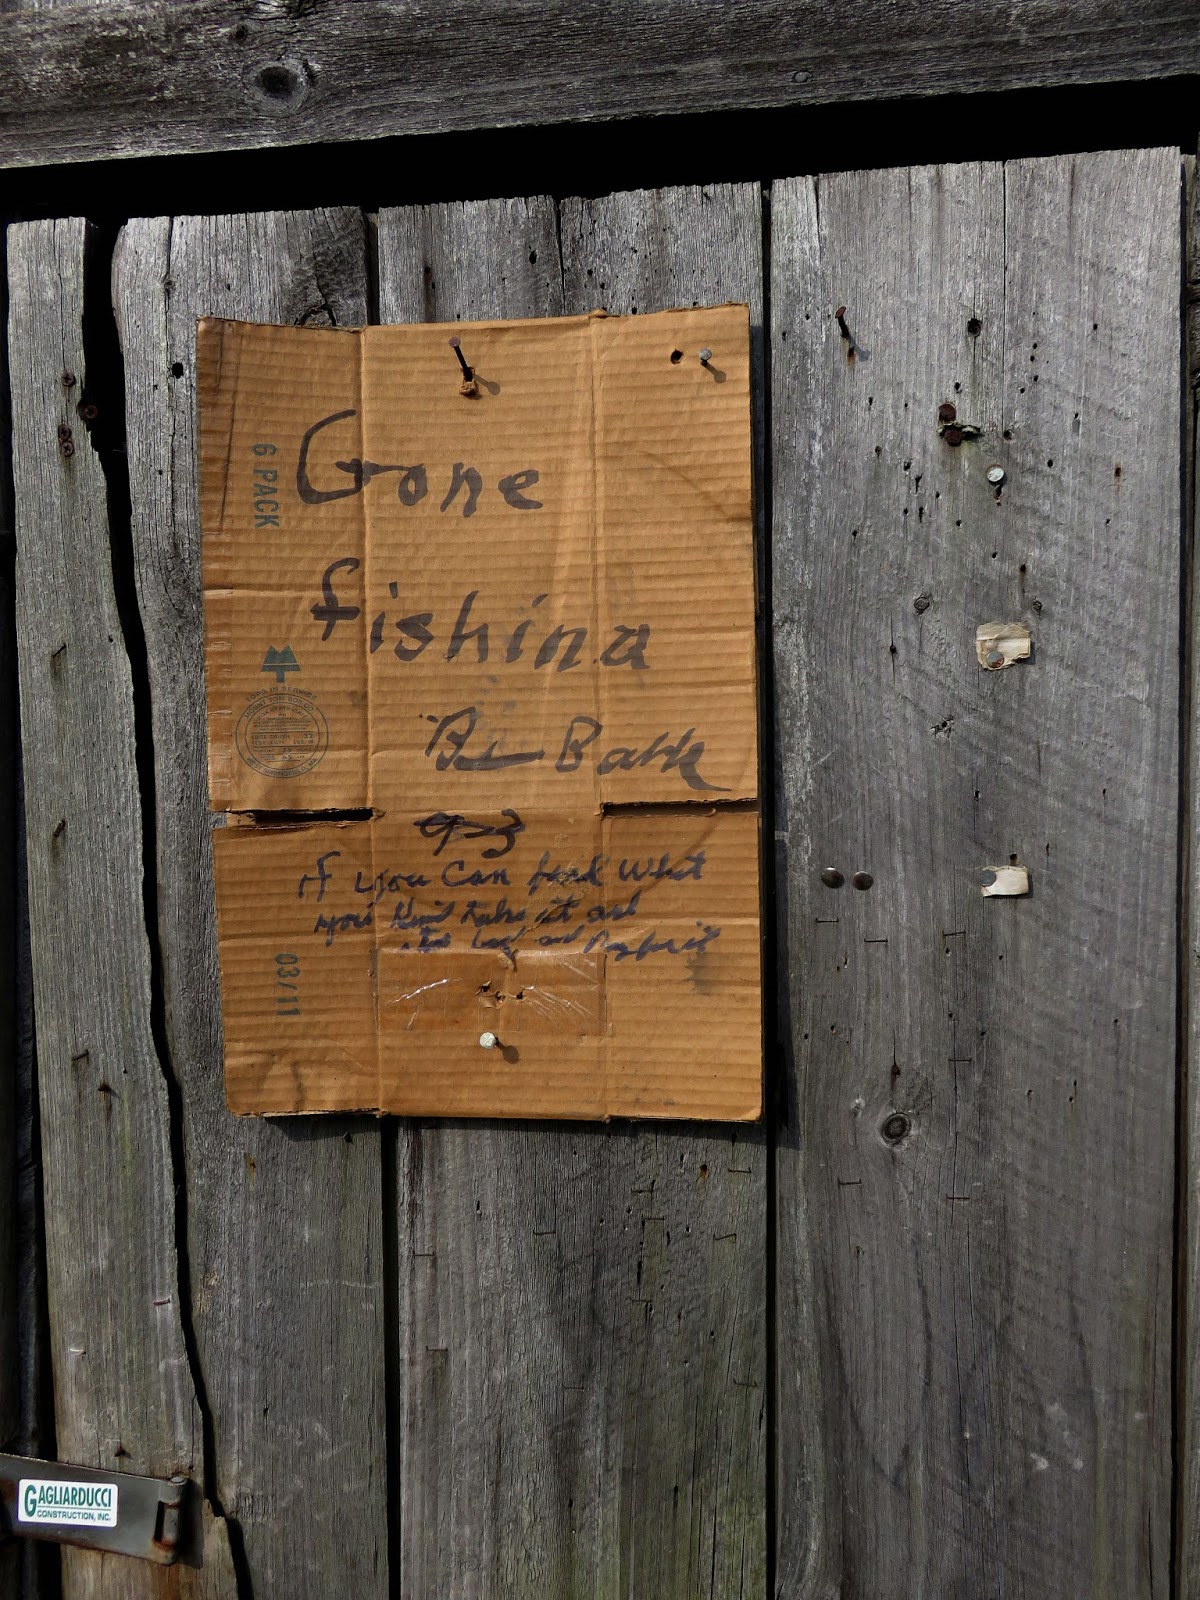 Gone
fishing
Be Back
9-3
if you Can find what
you need take it and
and Pay for it
6 PACK
03/11
GAGLIARDUCCI
CONSTRUCTION, INC.